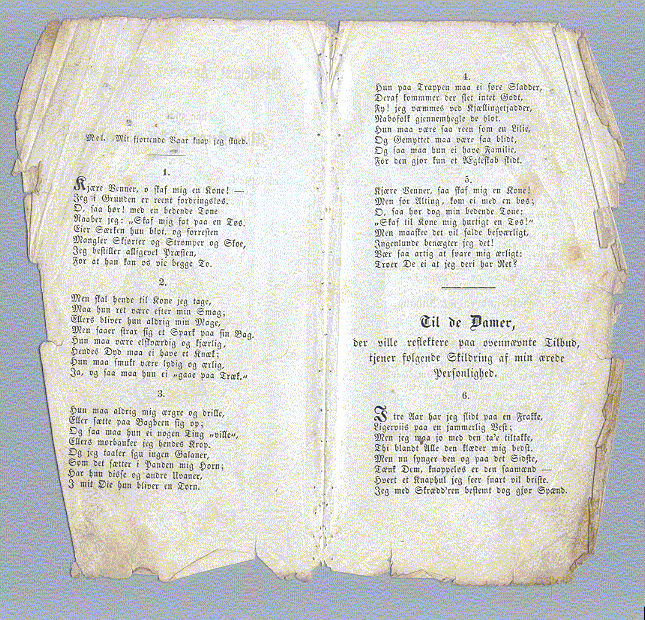 Mel. Mit fjortende Vaar knap jeg skued.
1.
Kjære Venner, o skaf mig en Kone! —
Jeg i Grunden er reent fordringsløs.
O, saa hør! med en bedende Tone
Raaber jeg: „Skaf mig fat paa en Tøs.
Eier Særken hun blot, og forresten
Mangler Skjorter og Strømper og Skoe,
Jeg bestiller alligevel Præsten,
For at han kan os vie begge To.
2.
Men skal hende til Kone jeg tage,
Maa hun ret være efter min Smag;
Ellers bliver hun aldrig min Mage,
Men faaer strax sig et Spark paa sin Bag.
Hun maa være elskværdig og kjærlig,
Hendes Dyd maa ei have et Knæk;
Hun maa smukt være lydig og ærlig,
Ja, og saa maa hun ei „gaae paa Træk.“
3.
Hun maa aldrig mig ærgre og drille,
Eller sætte paa Bagbeen sig op;
Og saa maa hun ei nogen Ting „ville“,
Ellers morbanker jeg hendes Krop.
Og jeg taaler sgu ingen Galaner,
Som det sætter i Panden mig Horn;
Har hun disse og andre Uvaner,
I mit Øie hun bliver en Torn.
4.
Hun paa Trappen maa ei føre Sladder,
Deraf kommmer der slet intet Godt,
Fy! jeg væmmes ved Kjællingesjadder,
Nabofolk gjennemhegle de blot.
Hun maa være saa reen som en Lilie,
Og Gemyttet maa være saa blidt,
Og saa maa hun ei have Familie,
For den gjør kun et Ægteskab slidt.
5.
Kjære Venner, saa skaf mig en Kone!
Men for Alting, kom ei med en bøs;
O, saa hør dog min bedende Tone;
„Skaf til Kone mig hurtigt en Tøs!“
Men maaskee det vil falde besværligt,
Ingenlunde benægter jeg det!
Vær saa artig at svare mig ærligt:
Troer De ei at jeg deri har Ret?
Til de Damer,
der ville reflektere paa ovennævnte Tilbud,
tjener følgende Skildring af min ærede
Personlighed.
6.
I tre Aar har jeg slidt paa en Frakke,
Ligerviis paa en jammerlig Vest;
Men jeg maa jo med den ta'e tiltakke,
Thi blandt Alle den klæder mig bedst.
Men nu synger den og paa det Sidste,
Tænk Dem, knappeløs er den saamænd —
Hvert et Knaphul jeg seer snart vil briste.
Jeg med Skrædd'ren bestemt dog gjør Spænd.